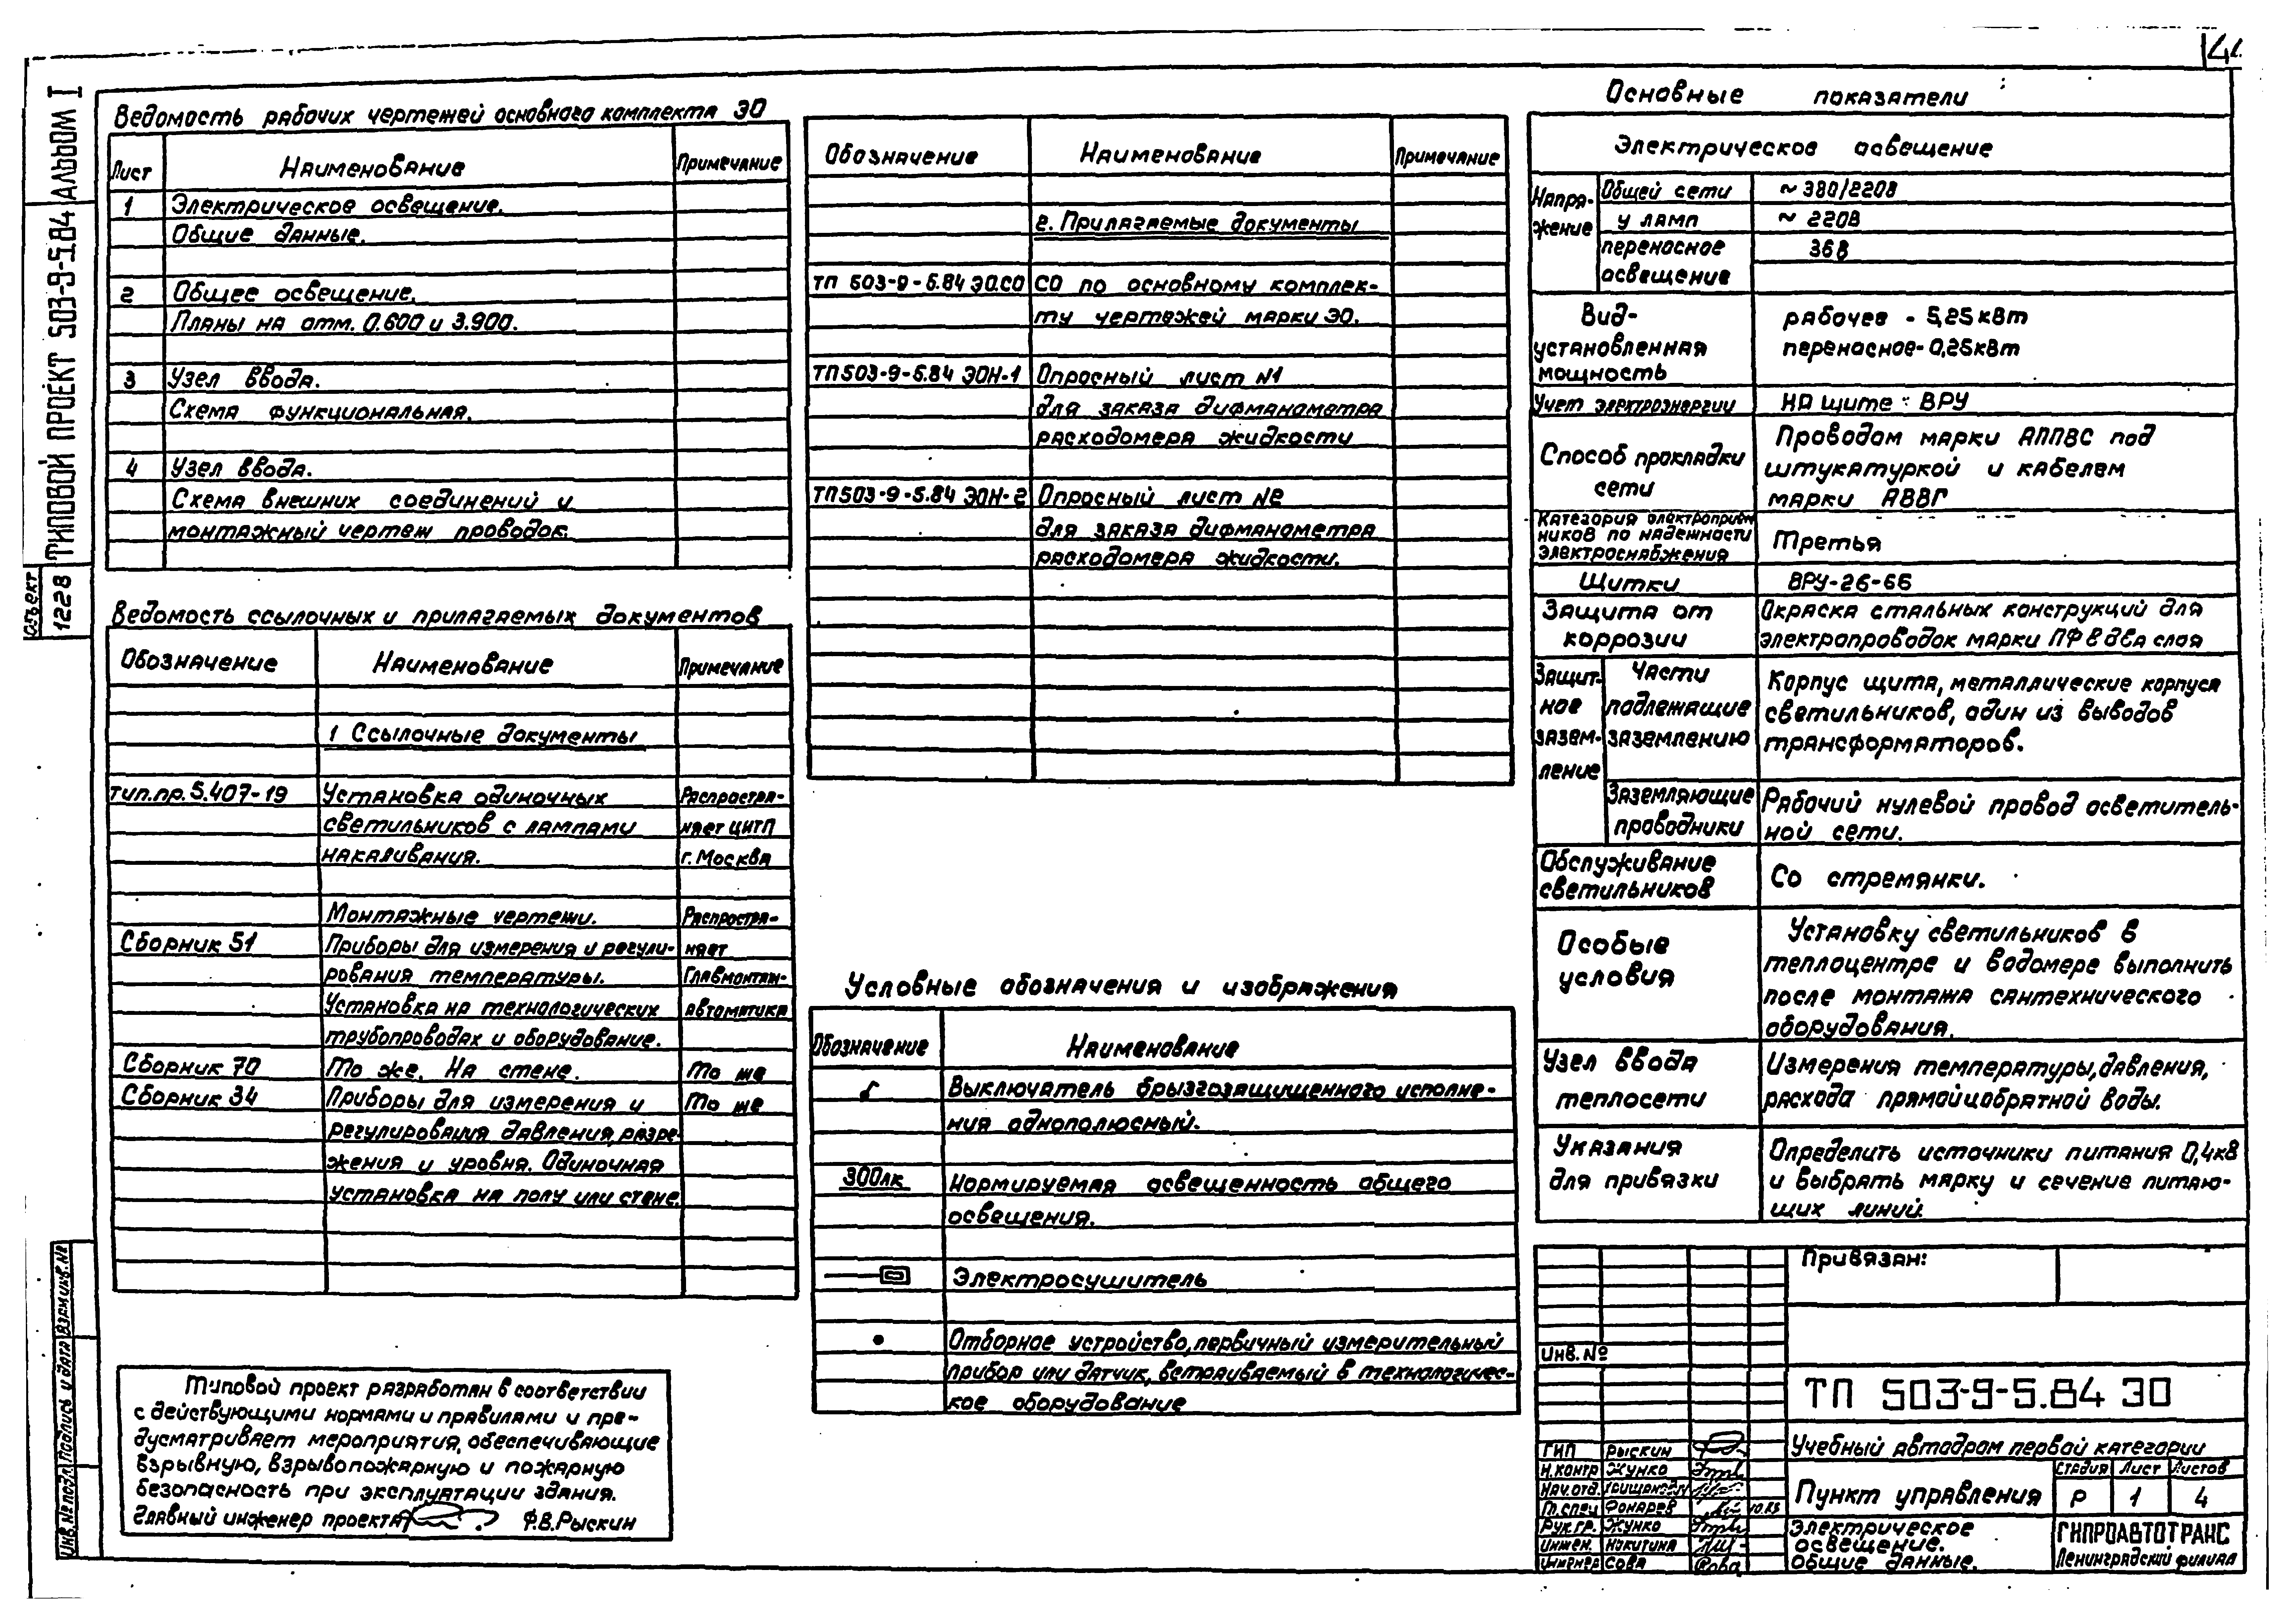 ТИПОВОЙ ПРОЕКТ 503-9-5.84 АЛЬБОМ I
Объект 1228
Ведомость рабочих чертежей основного комплекта ЭО
Лист Наименование Примечание
1 Электрическое освещение.
Общие данные.
2 Общее освещение.
Планы на отм. 0.600 и 3.900.
3 Узел ввода.
Схема функциональная.
4 Узел ввода.
Схема внешних соединений и
монтажный чертеж проводок.
Ведомость ссылочных и прилагаемых документов
Обозначение Наименование Примечание
1 Ссылочные документы
тип.пр. 5.407-19 Установка одиночных Распростра-
светильников с лампами няет ЦИТП
накаливания. г. Москва
Монтажные чертежи. Распростра-
Сборник 51 Приборы для измерения и регули- няет
рования температуры. Главмонтаж-
Установка на технологических автоматика
трубопроводах и оборудование.
Сборник 70 То же. На стене. То же
Сборник 34 Приборы для измерения и То же
регулирования давления, разре-
жения и уровня. Одиночная
установка на полу или стене.
Типовой проект разработан в соответствии
с действующими нормами и правилами и пре-
дусматривает мероприятия, обеспечивающие
взрывную, взрывопожарную и пожарную
безопасность при эксплуатации здания.
Главный инженер проекта Ф.В.Рыскин
Обозначение Наименование Примечание
2. Прилагаемые документы
ТП 503-9-5.84 ЭО.СО СО по основному комплек-
ту чертежей марки ЭО.
ТП503-9-5.84 ЭОН-1 Опросный лист N1
для заказа дифманометра
расходомера жидкости
ТП503-9-5.84 ЭОН-2 Опросный лист N2
для заказа дифманометра
расходомера жидкости.
Условные обозначения и изображения
Обозначение Наименование
Выключатель брызгозащищенного исполне-
ния однополюсный.
300лк Нормируемая освещенность общего
освещения.
Электросушитель
Отборное устройство, первичный измерительный
прибор или датчик, встраиваемый в технологичес-
кое оборудование
Основные показатели
Электрическое освещение
Напря-
жение
Общей сети ~380/220В
у ламп ~ 220В
переносное 36В
освещение
Вид- рабочее - 5,25кВт
установленная переносное-0,25кВт
мощность
Учет электроэнергии на щите ВРУ
Способ прокладки
сети
Проводом марки АППВС под
штукатуркой и кабелем
марки АВВГ
Категория электроприем
ников по надежности
электроснабжения
Третья
Щитки ВРУ-26-66
Защита от
коррозии
Окраска стальных конструкций для
электропроводок марки ПФ в два слоя
Защит-
ное
зазем-
ление
Части
подлежащие
заземлению
Корпус щита, металлические корпуса
светильников, один из выводов
трансформаторов.
Заземляющие
проводники
Рабочий нулевой провод осветитель-
ной сети.
Обслуживание
светильников
Со стремянки.
Особые
условия
Установку светильников в
теплоцентре и водомере выполнить
после монтажа сантехнического
оборудования.
Узел ввода
теплосети
Измерения температуры, давления,
расхода прямой и обратной воды.
Указания
для привязки
Определить источники питания 0,4кВ
и выбрать марку и сечение питаю-
щих линий.
Привязан:
Инв. №
ТП 503-9-5.84 ЭО
Учебный автодром первой категории
ГИП Рыскин
Н.контр Жунко
Нач.отд.
Гл.спец Фонарев
Рук.гр. Жунко
Инжен. Никитина
Инженер Сова
Пункт управления
Стадия Лист Листов
Р 1 4
Электрическое
освещение.
Общие данные.
ГИПРОАВТОТРАНС
Ленинградский филиал
Инв.№ подл. Подпись и дата Взам.инв.№